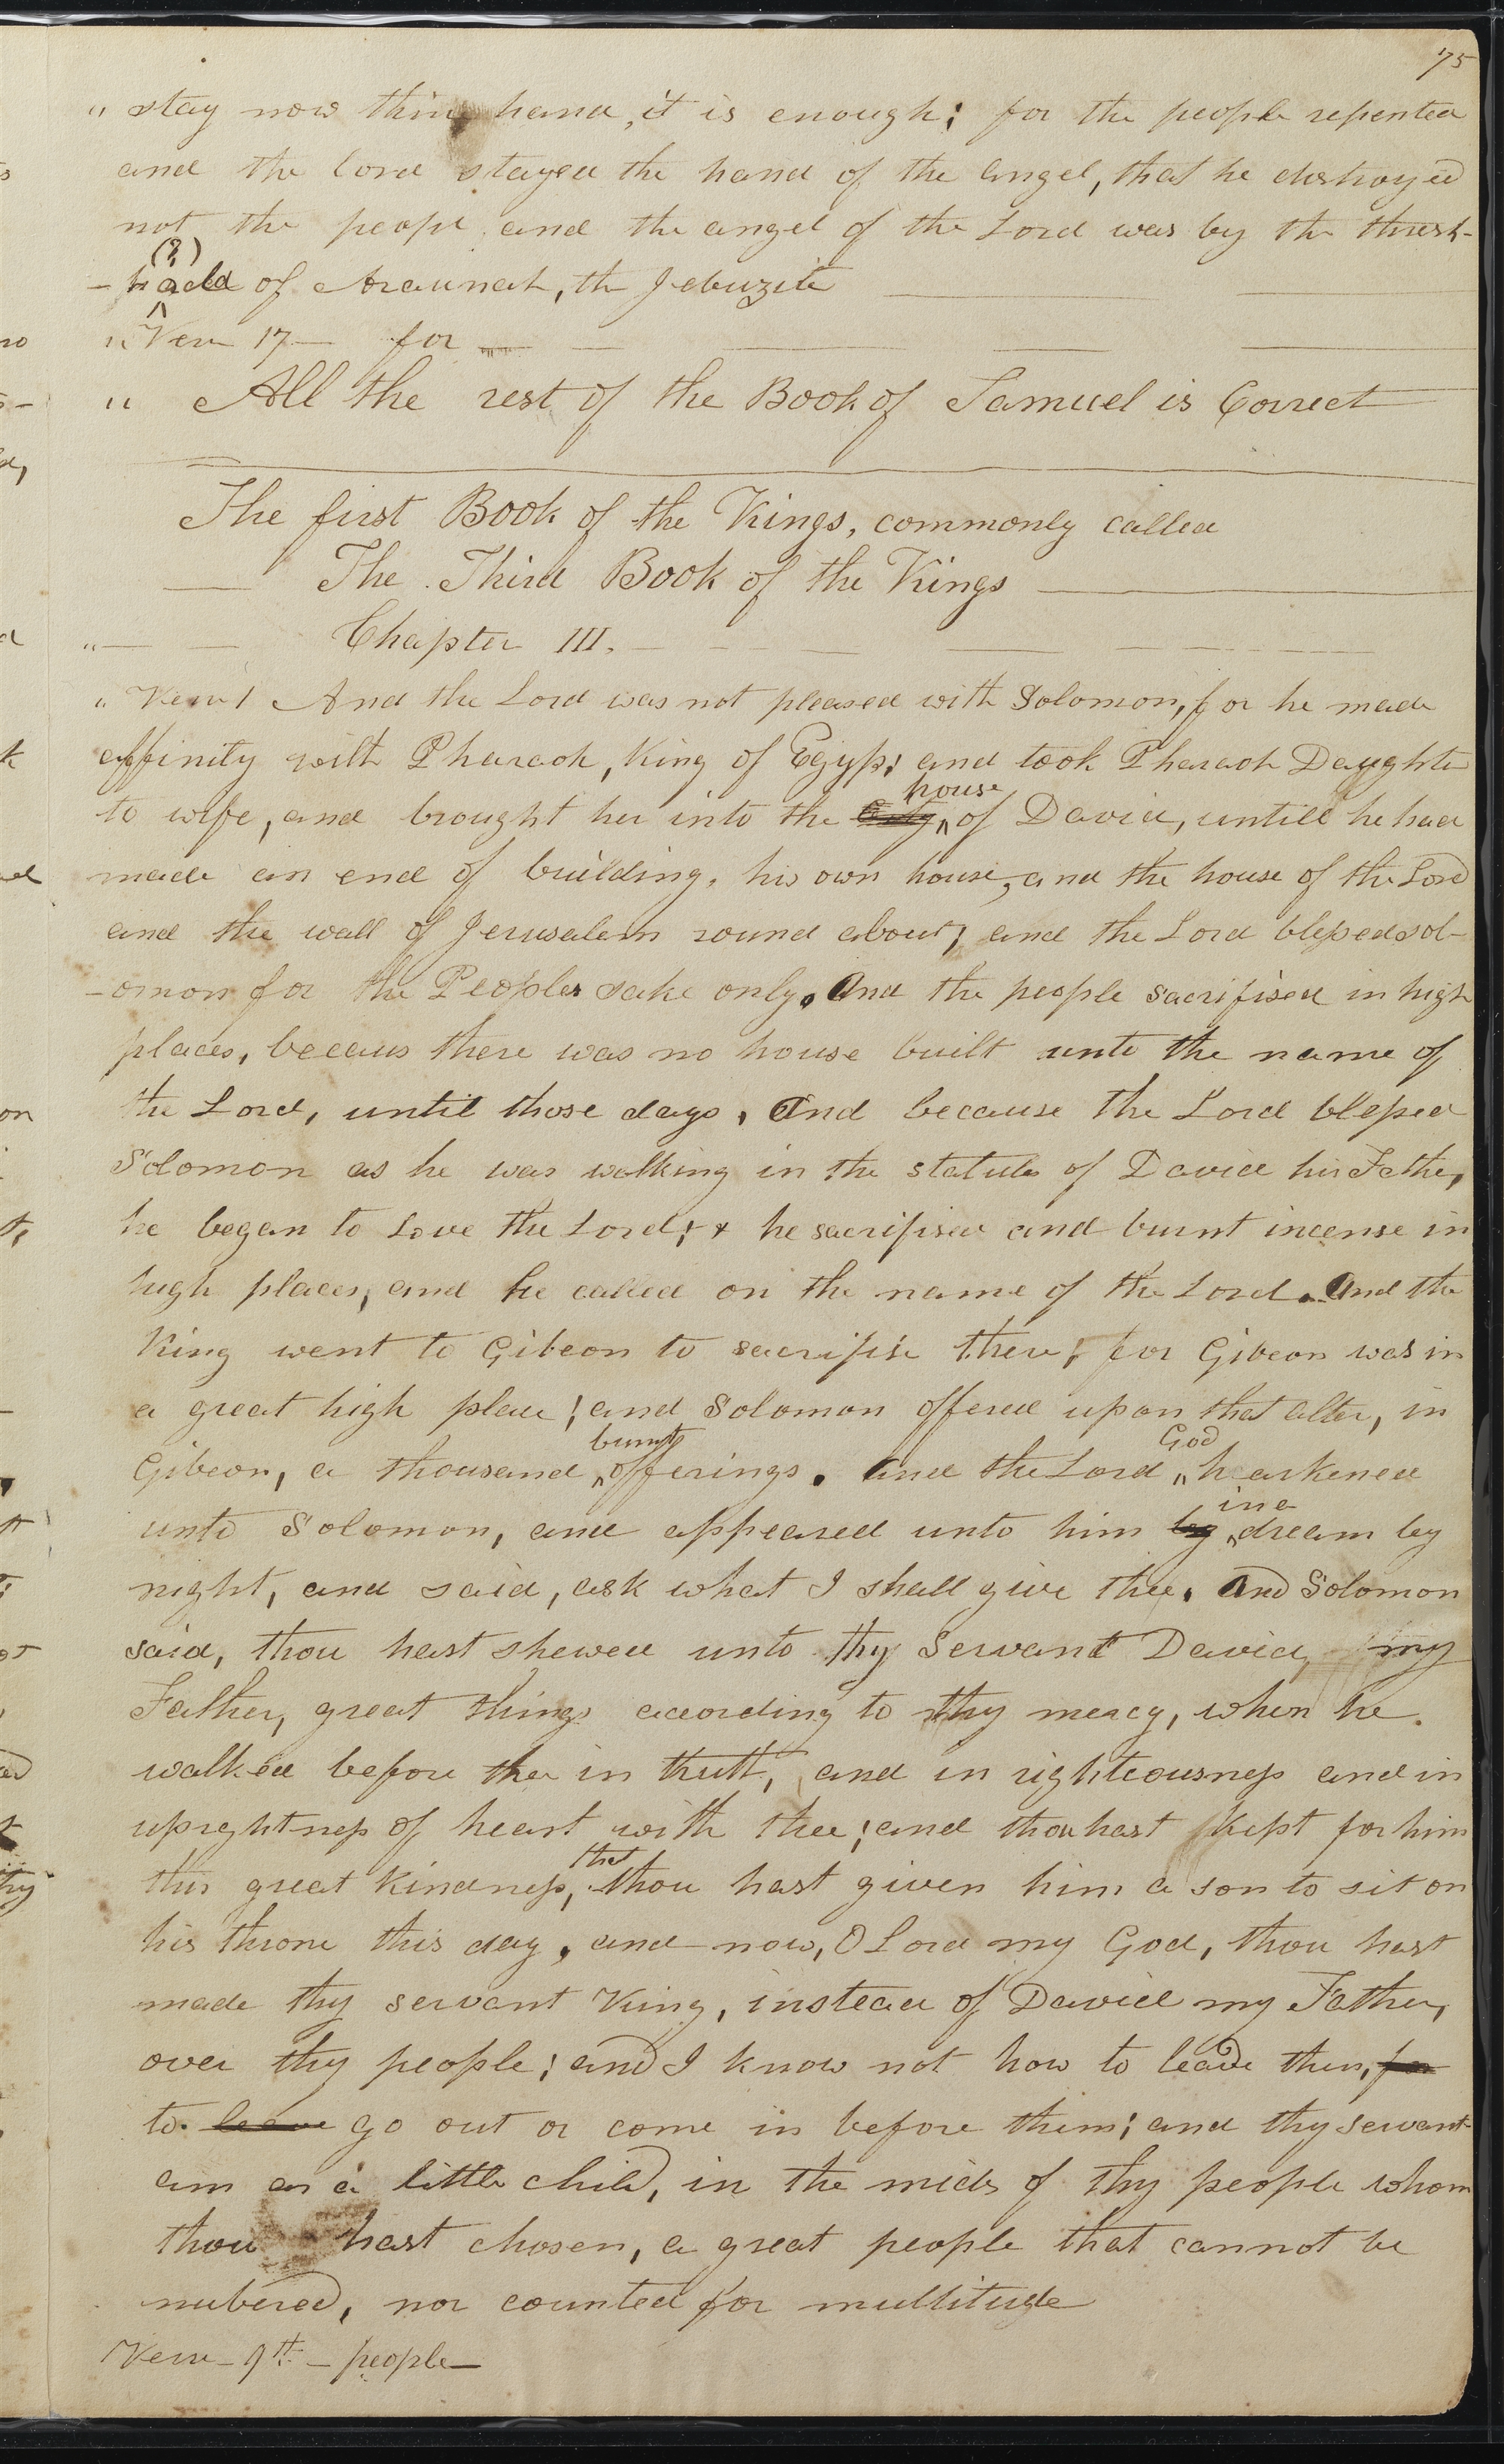 75
" stay now thine hand, it is enough; for the people repented
and the Lord stayed the hand of the angel, that he destroyed
not the peopl. and the angel of the Lord was by the thresh-
(?)
-hold of Araunah, the Jebuzite
" Verse 17— for — —
" All the rest of the Book of Samuel is Correct
The first Book of the Kings, commonly called
The Third Book of the Kings
"— — Chapter III. —
" Verse 1 And the Lord was not pleased with Solomon, for he made
affinity with Pharaoh, King of Egyp; and took Pharaoh Daughter
house
to wife, and brought her into the city ^ of David, untill he had
made an end of building, his own house, and the house of the Lord
and the wall of Jerusalem round about, and the Lord blessed sol-
-omon for the Peoples sake only. And the people sacrifised in high
places, becaus there was no house built unto the name of
the Lord, until those days, And because the Lord blessed
Solomon as he was walking in the statuts of David his Father,
he began to Love the Lord; & he sacrifised and burnt incense in
high places, and he called on the name of the Lord. And the
King went to Gibeon to sacrifise there; for Gibeon was in
a great high place; and Solomon offered upon that alter, in
burnt God
Gibeon, a thousand ^ offerings. And the Lord ^ hearkened
in a
unto Solomon, and appeared unto him by ^ dream by
night, and said, ask what I shall give thee. And Solomon
said, thou hast shewed unto thy Servant David, my
Father, great things according to thy mercy, when he
walked before thee in truth, and in righteousness and in
uprightness of heart with thee; and thou hast kept for him
that
this great kindness, thou hast given him a son to sit on
his throne this day, and now, O Lord my God, thou hast
made thy servant King, instead of David my Father,
over thy people; and I know not how to leade them, for
to leave go out or come in before them; and thy servant
am as a little child, in the mids of thy people whom
thou hast chosen, a great people that cannot be
nubered, nor counted for multitude
Verse — 9th — people —